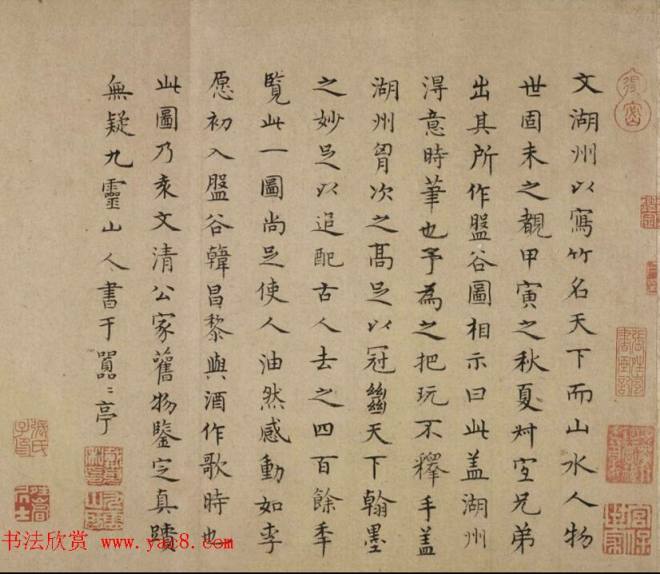 文湖州以寫竹名天下而山水人物
世固未之覩甲寅之秋夏尌宣兄弟
出其所作盤谷圖相示曰此盖湖州
得意時筆也予為之把玩不釋手盖
湖州胷次之高足以冠天下翰墨
之妙足以追配古人去之四百餘季
覧此一圖尚足使人油然感動如李
愿初入盤谷韓昌黎與酒作歌時也
此圖乃袁文清公家舊物鑒定真蹟
無疑九靈山人書于㗊〻亭
书法欣赏 www.yac8.com